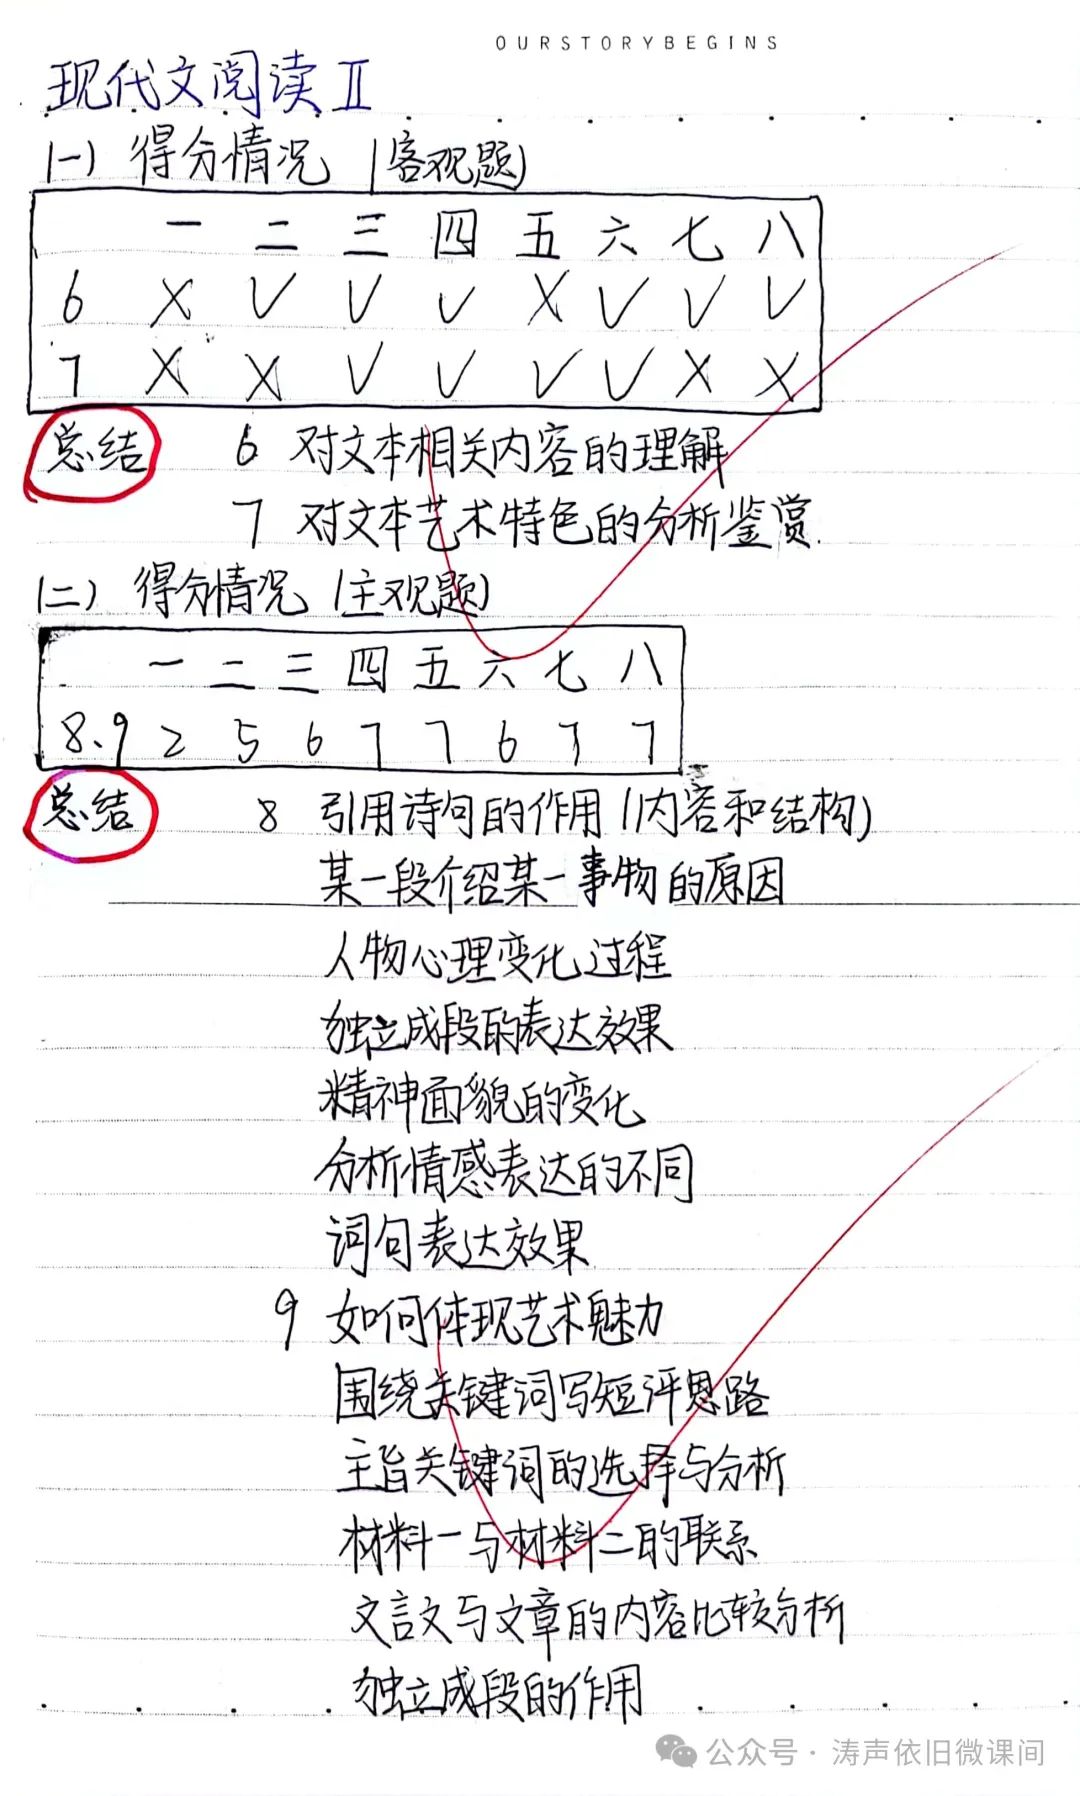 OURSTORYBEGINS
现代文阅读Ⅱ
(一) 得分情况 (客观题)
一 二 三 四 五 六 七 八
6 × √ √ √ × √ √ √
7 × × √ √ √ √ × ×
总结 6 对文本相关内容的理解
7 对文本艺术特色的分析鉴赏.
(二) 得分情况 (主观题)
一 二 三 四 五 六 七 八
8、9 2 5 6 7 7 6 7 7
总结 8 引用诗句的作用(内容和结构)
某一段介绍某一事物的原因
人物心理变化过程
独立成段的表达效果
精神面貌的变化
分析情感表达的不同
词句表达效果
9 如何体现艺术魅力
围绕关键词写短评思路
主旨关键词的选择与分析
材料一与材料二的联系
文言文与文章的内容比较分析
独立成段的作用
公众号·涛声依旧微课间